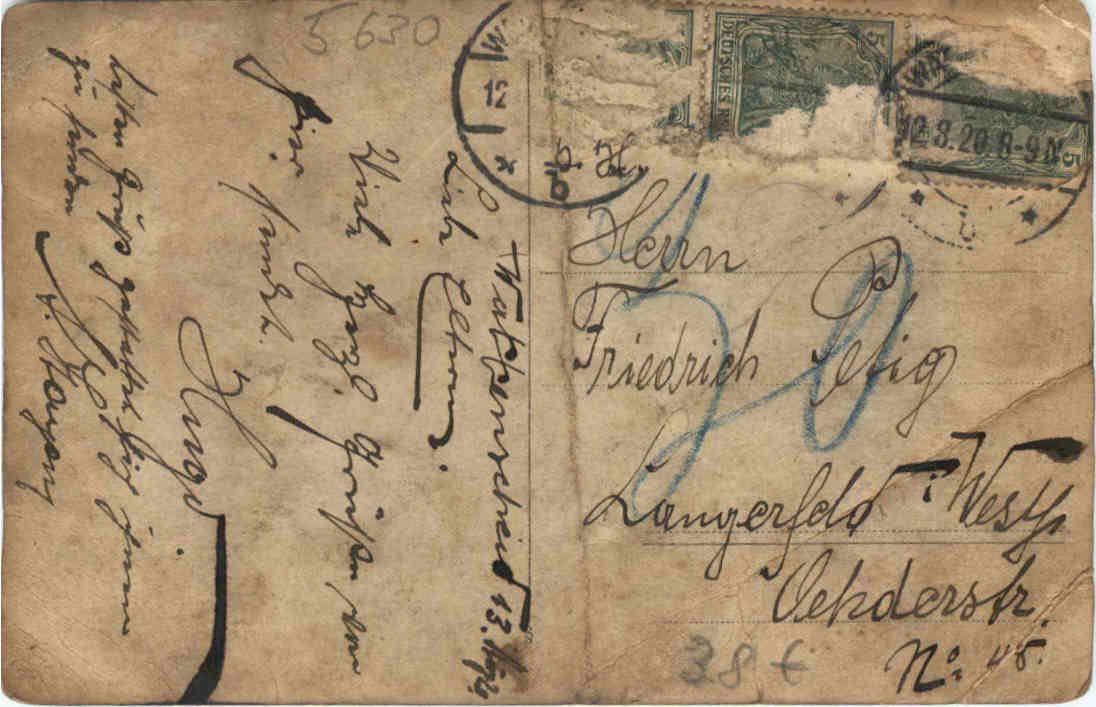 5 630
Wattenscheid 13. März
Liebe Eltern.
Viele herzl. Grüße von
hier sendet.
Hugo
besten Gruß gestattet sich Ihnen
zu senden
DEUTSCHES R
5
5
12
12.3.20 8-9 N
Herrn
Friedrich
Langerfeld i. Westf
Oehderstr.
No: 45.
20
38 €